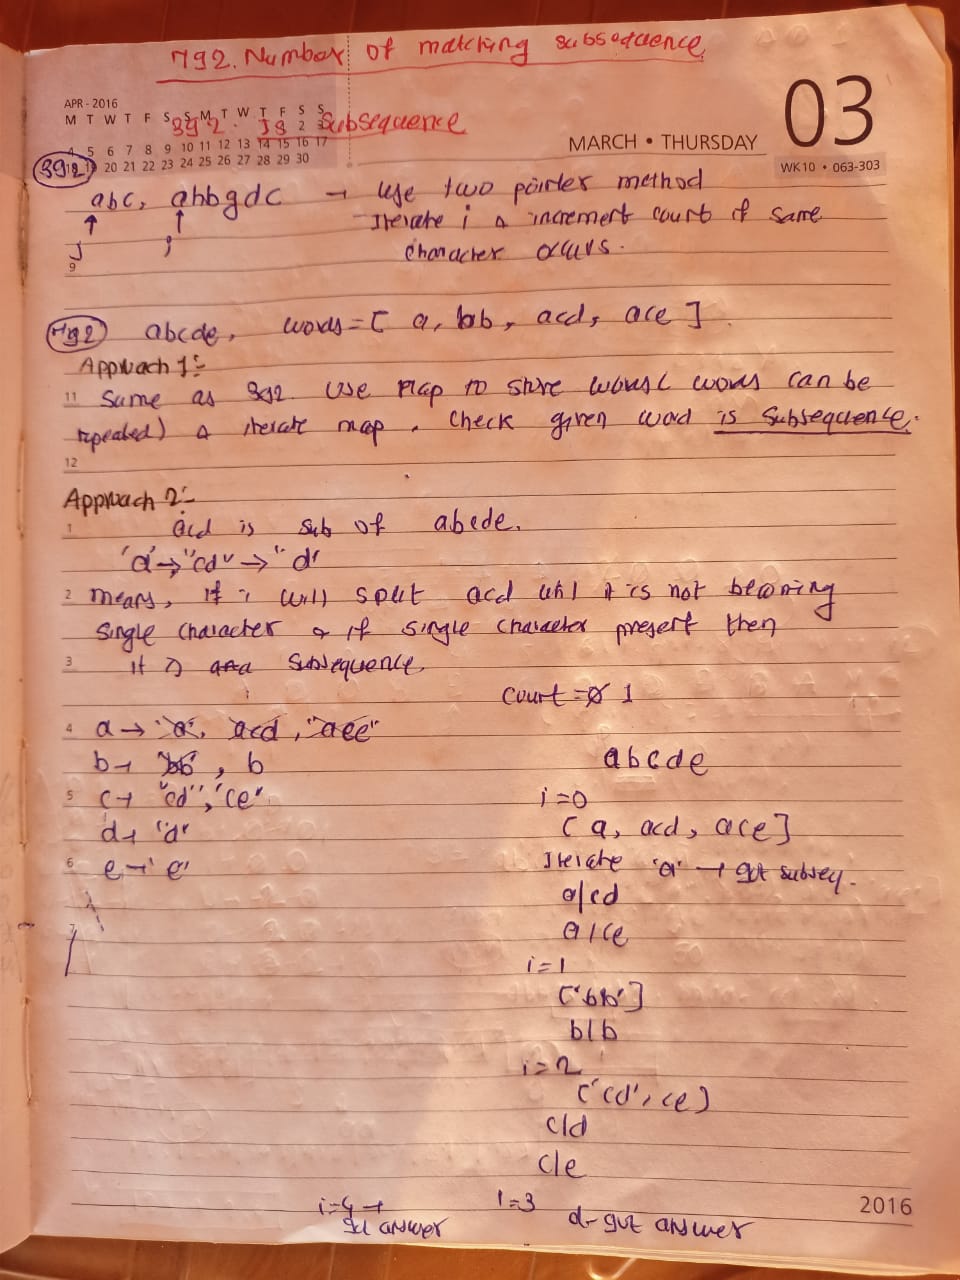 792. Number of matching subsequence
APR - 2016
M T W T F S S M T W T F S S
392. IS Subsequence
2 3
4 5 6 7 8 9 10 11 12 13 14 15 16 17
18 19 20 21 22 23 24 25 26 27 28 29 30
MARCH • THURSDAY
03
WK 10 • 063-303
392
abc, ahbgdc → Use two pointer method
Iterate i & increment count if same
character occurs.
j i
9
792 abcde, words = [ a, bb, acd, ace ]
Approach 1:-
11 Same as 392. Use Map to store words ( words can be
repeated) & iterate map. Check given word is subsequence.
12
Approach 2:-
1 acd is sub of abcde.
'a' → "cd" → "d"
2 means, if i will split acd until it is not becoming
single character & if single character present then
3 it is a subsequence.
count = 0 1
4 a → "a", acd, "ace"
b → "bb", b
abcde
5 c → "cd", "ce"
i=0
d → "d"
[ a, acd, ace ]
6 e → 'e'
Iterate 'a' → got subseq.
a/cd
7
a/ce
i=1
['bb']
b/b
i=2
('cd', ce)
c/d
c/e
i=3
d- got answer
i=4 →
got answer
2016